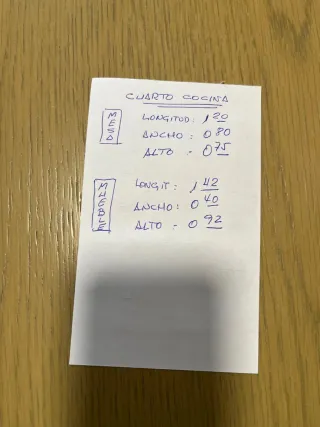 CUARTO COCINA
MESA
LONGITUD: 1,20
ANCHO: 0,80
ALTO - 0,75
MUEBLE
LONGIT: 1,42
ANCHO: 0,40
ALTO - 0,92